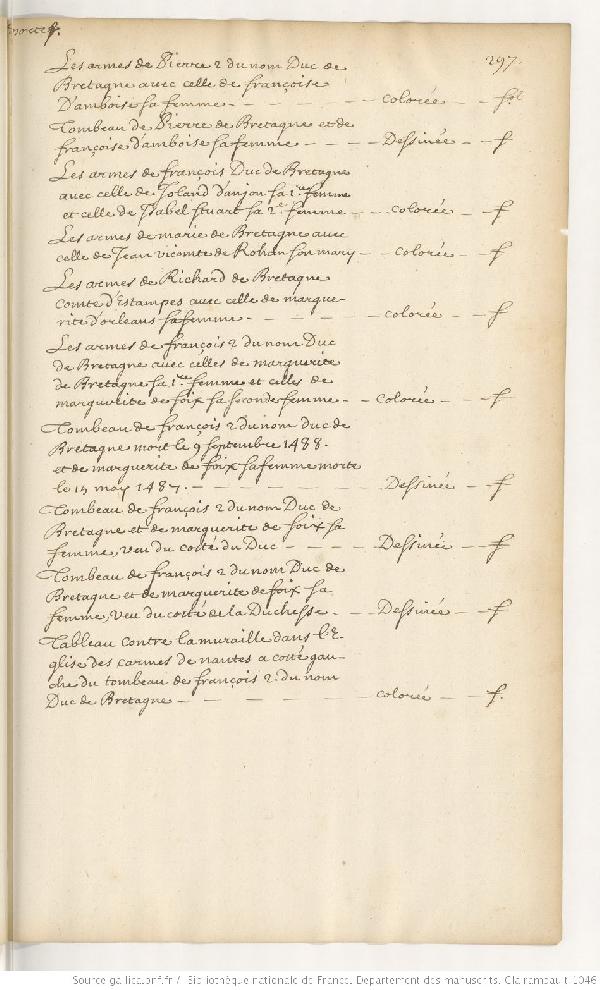 297.
Les armes de Pierre 2 du nom Duc de
Bretagne avec celle de françoise
D'amboise sa femme - - - - - colorée - - fol
Tombeau de Pierre de Bretagne et de
françoise d'amboise sa femme - - - Dessinée - f
Les armes de françois Duc de Bretagne
avec celle de Joland d'anjou sa 1.re femme
et celle de Isabel Stuart sa 2.e femme - - colorée - f
Les armes de marie de Bretagne avec
celle de Jean vicomte de Rohan son mary - - colorée - f
Les armes de Richard de Bretagne
comte d'Estampes avec celle de margue-
rite d'orleans sa femme - - - - - colorée - - f
Les armes de françois 2 du nom Duc
de Bretagne avec celles de marguerite
de Bretagne sa 1.re femme et celles de
marguerite de foix sa seconde femme - - colorée - f
Tombeau de françois 2 du nom duc de
Bretagne mort le 9 septembre 1488.
et de marguerite de foix sa femme morte
le 15 may 1487. - - - - - Dessinée - f
Tombeau de françois 2 du nom Duc de
Bretagne et de marguerite de foix sa
femme, veu du costé du Duc - - - - Dessinée - f
Tombeau de françois 2 du nom Duc de
Bretagne et de marguerite de foix sa
femme, veu du costé de la Duchesse - - Dessinée - f
Tableau contre la muraille dans l'E-
glise des carmes de nantes a costé gau-
che du tombeau de françois 2. du nom
Duc de Bretagne - - - - - - colorée - - f.
Source gallica.bnf.fr / Bibliothèque nationale de France. Département des manuscrits. Clairambault 1046